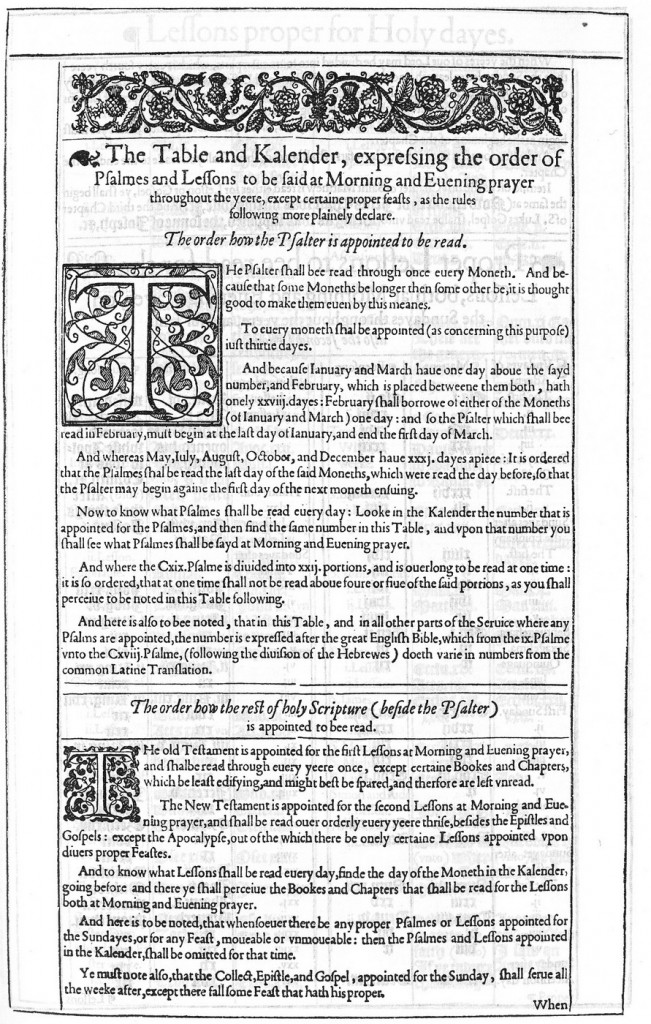 ❧ The Table and Kalender, expreſsing the order of
Pſalmes and Leſſons to be ſaid at Morning and Euening prayer
throughout the yeere, except certaine proper feaſts, as the rules
following more plainely declare.
The order how the Pſalter is appointed to be read.
THe Pſalter ſhall bee read through once euery Moneth. And be-
cauſe that ſome Moneths be longer then ſome other be, it is thought
good to make them euen by this meanes.
To euery moneth ſhal be appointed (as concerning this purpoſe)
iuſt thirtie dayes.
And becauſe Ianuary and March haue one day aboue the ſayd
number, and February, which is placed betweene them both, hath
onely xxviij. dayes: February ſhall borrowe of either of the Moneths
(of Ianuary and March) one day: and ſo the Pſalter which ſhall bee
read in February, muſt begin at the laſt day of Ianuary, and end the firſt day of March.
And whereas May, Iuly, Auguſt, Octobor, and December haue xxxj. dayes apiece: It is ordered
that the Pſalmes ſhal be read the laſt day of the ſaid Moneths, which were read the day before, ſo that
the Pſalter may begin againe the firſt day of the next moneth enſuing.
Now to know what Pſalmes ſhall be read euery day: Looke in the Kalender the number that is
appointed for the Pſalmes, and then find the ſame number in this Table, and vpon that number you
ſhall ſee what Pſalmes ſhall be ſayd at Morning and Euening prayer.
And where the Cxix. Pſalme is diuided into xxij. portions, and is ouerlong to be read at one time:
it is ſo ordered, that at one time ſhall not be read aboue foure or fiue of the ſaid portions, as you ſhall
perceiue to be noted in this Table following.
And here is alſo to bee noted, that in this Table, and in all other parts of the Seruice where any
Pſalms are appointed, the number is expreſſed after the great Engliſh Bible, which from the ix. Pſalme
vnto the Cxviij. Pſalme, (following the diuiſion of the Hebrewes) doeth varie in numbers from the
common Latine Tranſlation.
The order how the reſt of holy Scripture (beſide the Pſalter)
is appointed to bee read.
THe old Teſtament is appointed for the firſt Leſſons at Morning and Euening prayer,
and ſhalbe read through euery yeere once, except certaine Bookes and Chapters,
which be leaſt edifying, and might beſt be ſpared, and therfore are left vnread.
The New Teſtament is appointed for the ſecond Leſſons at Morning and Eue-
ning prayer, and ſhall be read ouer orderly euery yeere thriſe, beſides the Epiſtles and
Goſpels: except the Apocalypſe, out of the which there be onely certaine Leſſons appointed vpon
diuers proper Feaſtes.
And to know what Leſſons ſhall be read euery day, finde the day of the Moneth in the Kalender,
going before and there ye ſhall perceiue the Bookes and Chapters that ſhall be read for the Leſſons
both at Morning and Euening prayer.
And here is to be noted, that whenſoeuer there be any proper Pſalmes or Leſſons appointed for
the Sundayes, or for any Feaſt, moueable or vnmoueable: then the Pſalmes and Leſſons appointed
in the Kalender, ſhall be omitted for that time.
Ye muſt note alſo, that the Collect, Epiſtle, and Goſpel, appointed for the Sunday, ſhall ſerue all
the weeke after, except there fall ſome Feaſt that hath his proper.
When